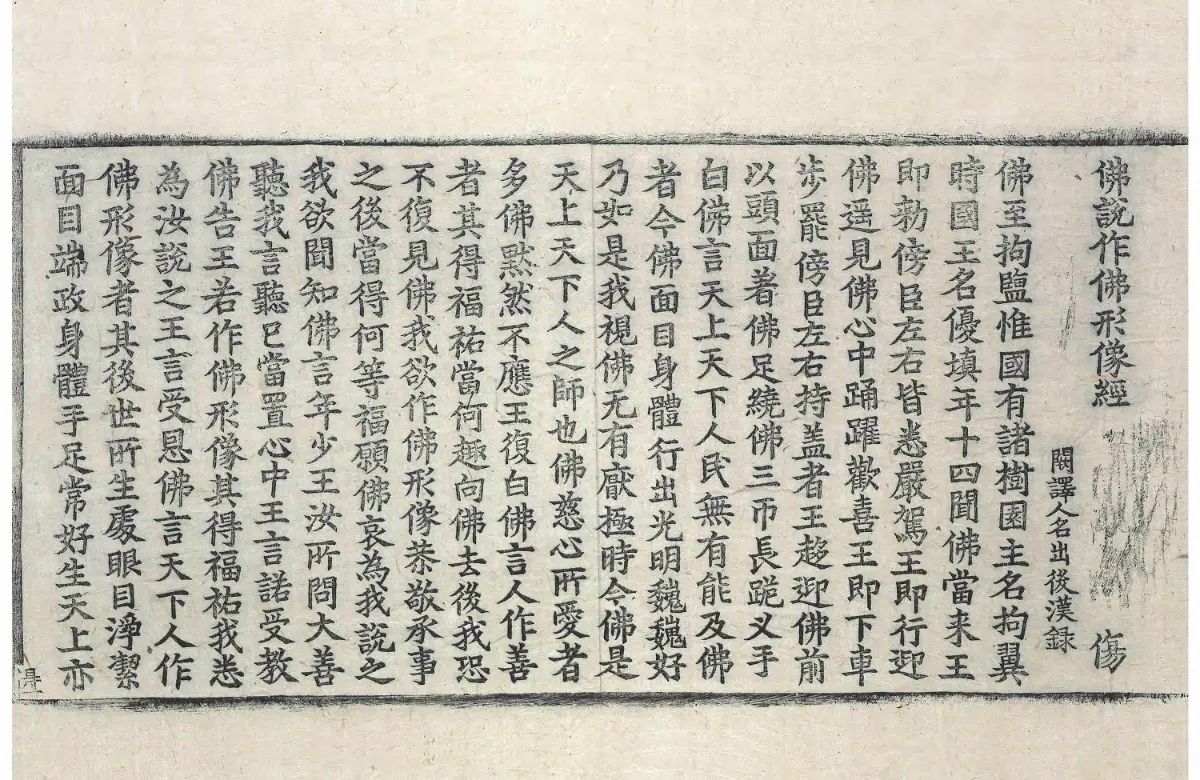 佛說作佛形像經 傷
闕譯人名出後漢録
佛至拘鹽惟國有諸樹園主名拘翼
時國王名優填年十四聞佛當来王
即勑傍臣左右皆悉嚴駕王即行迎
佛遥見佛心中踊躍歡喜王即下車
歩罷傍臣左右持盖者王趍迎佛前
以頭面著佛足繞佛三帀長跪叉手
白佛言天上天下人民無有能及佛
者今佛面目身體行出光明巍巍好
乃如是我視佛无有厭極時今佛是
天上天下人之師也佛慈心所愛者
多佛黙然不應王復白佛言人作善
者其得福祐當何趣向佛去後我恐
不復見佛我欲作佛形像恭敬承事
之後當得何等福願佛哀為我說之
我欲聞知佛言年少王汝所問大善
聽我言聽已當置心中王言諾受教
佛告王若作佛形像其得福祐我悉
為汝說之王言受恩佛言天下人作
佛形像者其後世所生處眼目淨潔
面目端政身體手足常好生天上亦